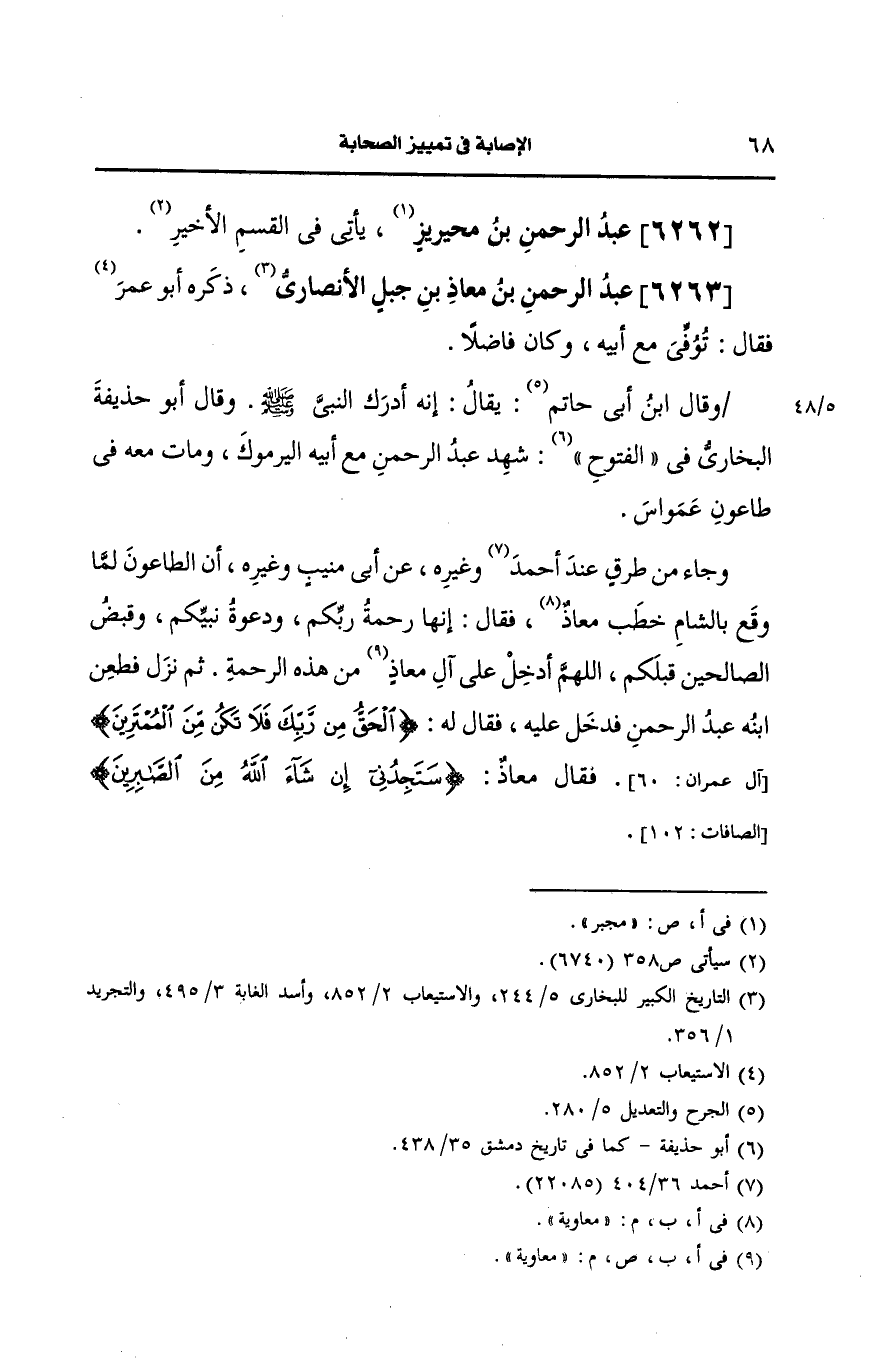 ٦٨ الإصابة فى تمييز الصحابة
[٦٢٦٢] عبدُ الرحمنِ بنُ محيريزٍ(١) ، يأتِى فى القسمِ الأخيرِ(٢) .
[٦٢٦٣] عبدُ الرحمنِ بنُ معاذِ بنِ جبلٍ الأنصارىُّ(٣) ، ذكَره أبو عمرَ(٤)
فقال : تُوُفِّىَ مع أبيه ، وكان فاضلًا .
٤٨/٥ /وقال ابنُ أبى حاتمٍ(٥) : يقالُ : إنه أدرَك النبىَّ ﷺ . وقال أبو حذيفةَ
البخارىُّ فى « الفتوحِ »(٦) : شهِد عبدُ الرحمنِ مع أبيه اليرموكَ ، ومات معه فى
طاعونِ عَمَواسَ .
وجاء من طرقٍ عندَ أحمدَ(٧) وغيرِه ، عن أبى منيبٍ وغيرِه ، أن الطاعونَ لمَّا
وقَع بالشامِ خطَب معاذٌ(٨) ، فقال : إنها رحمةُ ربِّكم ، ودعوةُ نبيِّكم ، وقبضُ
الصالحين قبلَكم ، اللهمَّ أدخِلْ على آلِ معاذٍ(٩) من هذه الرحمةِ . ثم نزَل فطعِن
ابنُه عبدُ الرحمنِ فدخَل عليه ، فقال له : ﴿ٱلْحَقُّ مِن رَّبِّكَ فَلَا تَكُن مِّنَ ٱلْمُمْتَرِينَ﴾
[آل عمران: ٦٠] . فقال معاذٌ : ﴿سَتَجِدُنِىٓ إِن شَآءَ ٱللَّهُ مِنَ ٱلصَّـٰبِرِينَ﴾
[الصافات : ١٠٢] .
(١) فى أ ، ص : « مجبر » .
(٢) سيأتى ص٣٥٨ (٦٧٤٠) .
(٣) التاريخ الكبير للبخارى ٥/ ٢٤٤، والاستيعاب ٢/ ٨٥٢، وأسد الغابة ٣/ ٤٩٥، والتجريد
١/ ٣٥٦.
(٤) الاستيعاب ٢/ ٨٥٢.
(٥) الجرح والتعديل ٥/ ٢٨٠.
(٦) أبو حذيفة - كما فى تاريخ دمشق ٣٥/ ٤٣٨.
(٧) أحمد ٣٦/ ٤٠٤ (٢٢٠٨٥) .
(٨) فى أ ، ب ، م : « معاوية » .
(٩) فى أ ، ب ، ص ، م : « معاوية » .